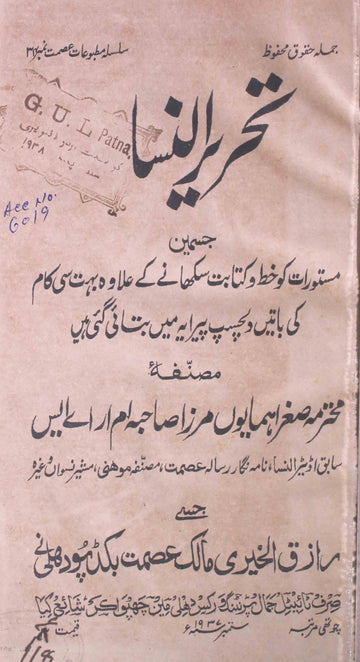 جملہ حقوق محفوظ
سلسلہ مطبوعات عصمت نمبر ۳۱
تحریر النسا
G. U. L Patna
۱۹۳۸
Acc No.
6019
جسمیں
مستورات کو خط و کتابت سکھانے کے علاوہ بہت سی کام
کی باتیں دلچسپ پیرایہ میں بتائی گئی ہیں
مصنّفۂ
محترمہ صغرا ہمایوں مرزا صاحبہ ام ار اے ایس
سابق اڈیٹر النسا، نامہ نگار رسالہ عصمت، مصنفہ موہنی، مشیر نسواں وغیرہ
جسے
رازق الخیری مالک عصمت بکڈپو دھلی نے
صرف ٹائیٹل جمال پرنٹنگ ورکس دھلی میں چھپوا کر شائع کیا
چوتھی مرتبہ
ستمبر ۱۹۳۷ء
قیمت